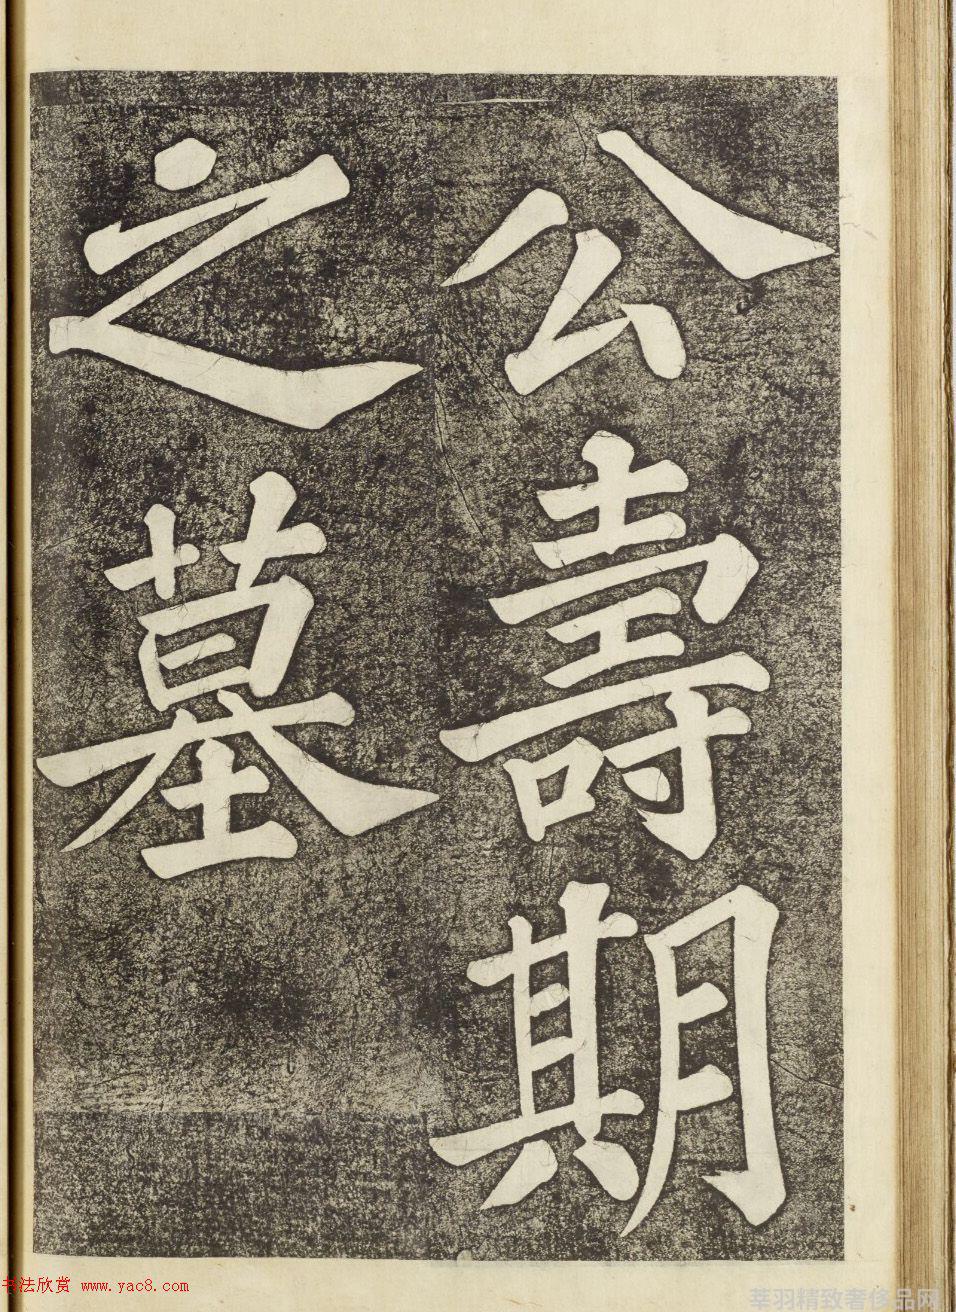 公壽期
之墓
书法欣赏 www.yac8.com
莘羽精致奢侈品网